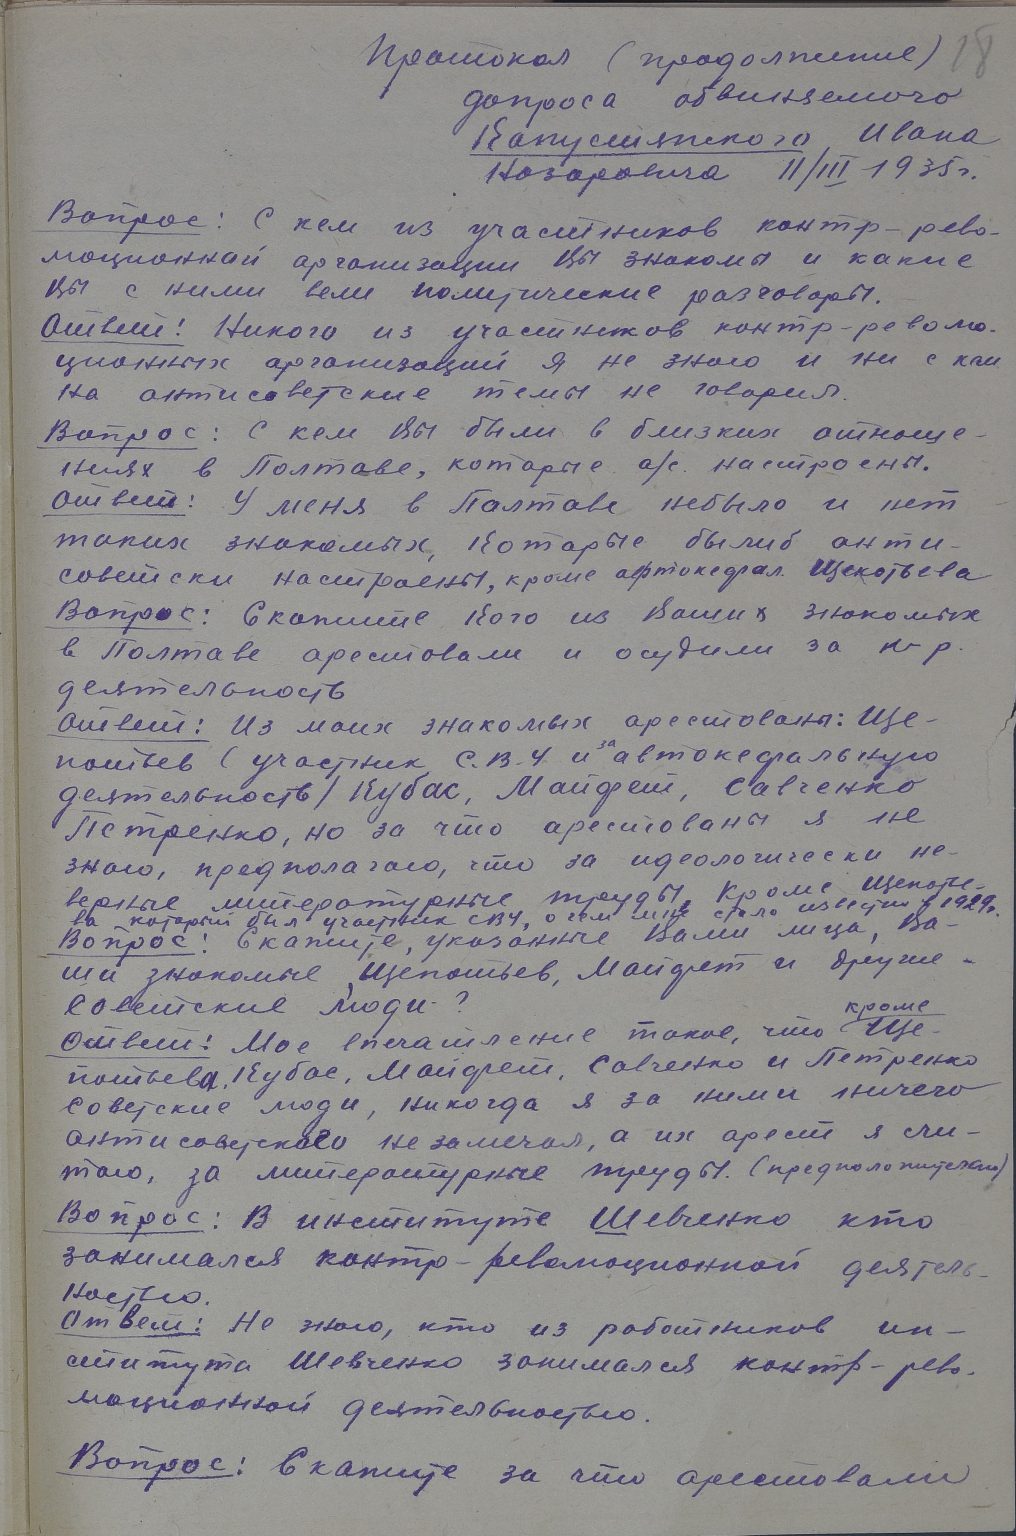 18
Протокол (продолжение)
допроса обвиняемого
Капустянского Ивана
Назаровича 11/III 1935 г.
Вопрос: С кем из участников контр-рево-
люционной организации Вы знакомы и какие
Вы с ними вели политические разговоры.
Ответ: Никого из участников контр-револю-
ционных организаций я не знаю и ни с кем
на антисоветские темы не говорил.
Вопрос: С кем Вы были в близких отноше-
ниях в Полтаве, которые а/с. настроены.
Ответ: У меня в Полтаве небыло и нет
таких знакомых, которые былиб анти-
советски настроены, кроме автокефал. Щепотьева
Вопрос: Скажите кого из Ваших знакомых
в Полтаве арестовали и осудили за к-р.
деятельность
Ответ: Из моих знакомых арестованы: Ще-
потьев (участник С.В.У. и за автокефальную
деятельность) Кубас, Майфет, Савченко
Петренко, но за что арестованы я не
знаю, предполагаю, что за идеологически не-
верные литературные труды, кроме Щепотье-
ва который был участник СВУ, о чем мне стало известно в 1929г.
Вопрос: Скажите, указанные Вами лица, Ва-
ши знакомые Щепотьев, Майфет и другие -
Советские люди?
Ответ: Мое впечатление такое, что кроме Ще-
потьева, Кубас, Майфет, Савченко и Петренко
Советские люди, никогда я за ними ничего
антисоветского не замечал, а их арест я счи-
таю, за литературные труды. (предположительно)
Вопрос: В институте Шевченко кто
занимался контр-революционной деятель-
ностью.
Ответ: Не знаю, кто из работников ин-
ститута Шевченко занимался контр-рево-
люционной деятельностью.
Вопрос: Скажите за что арестовали